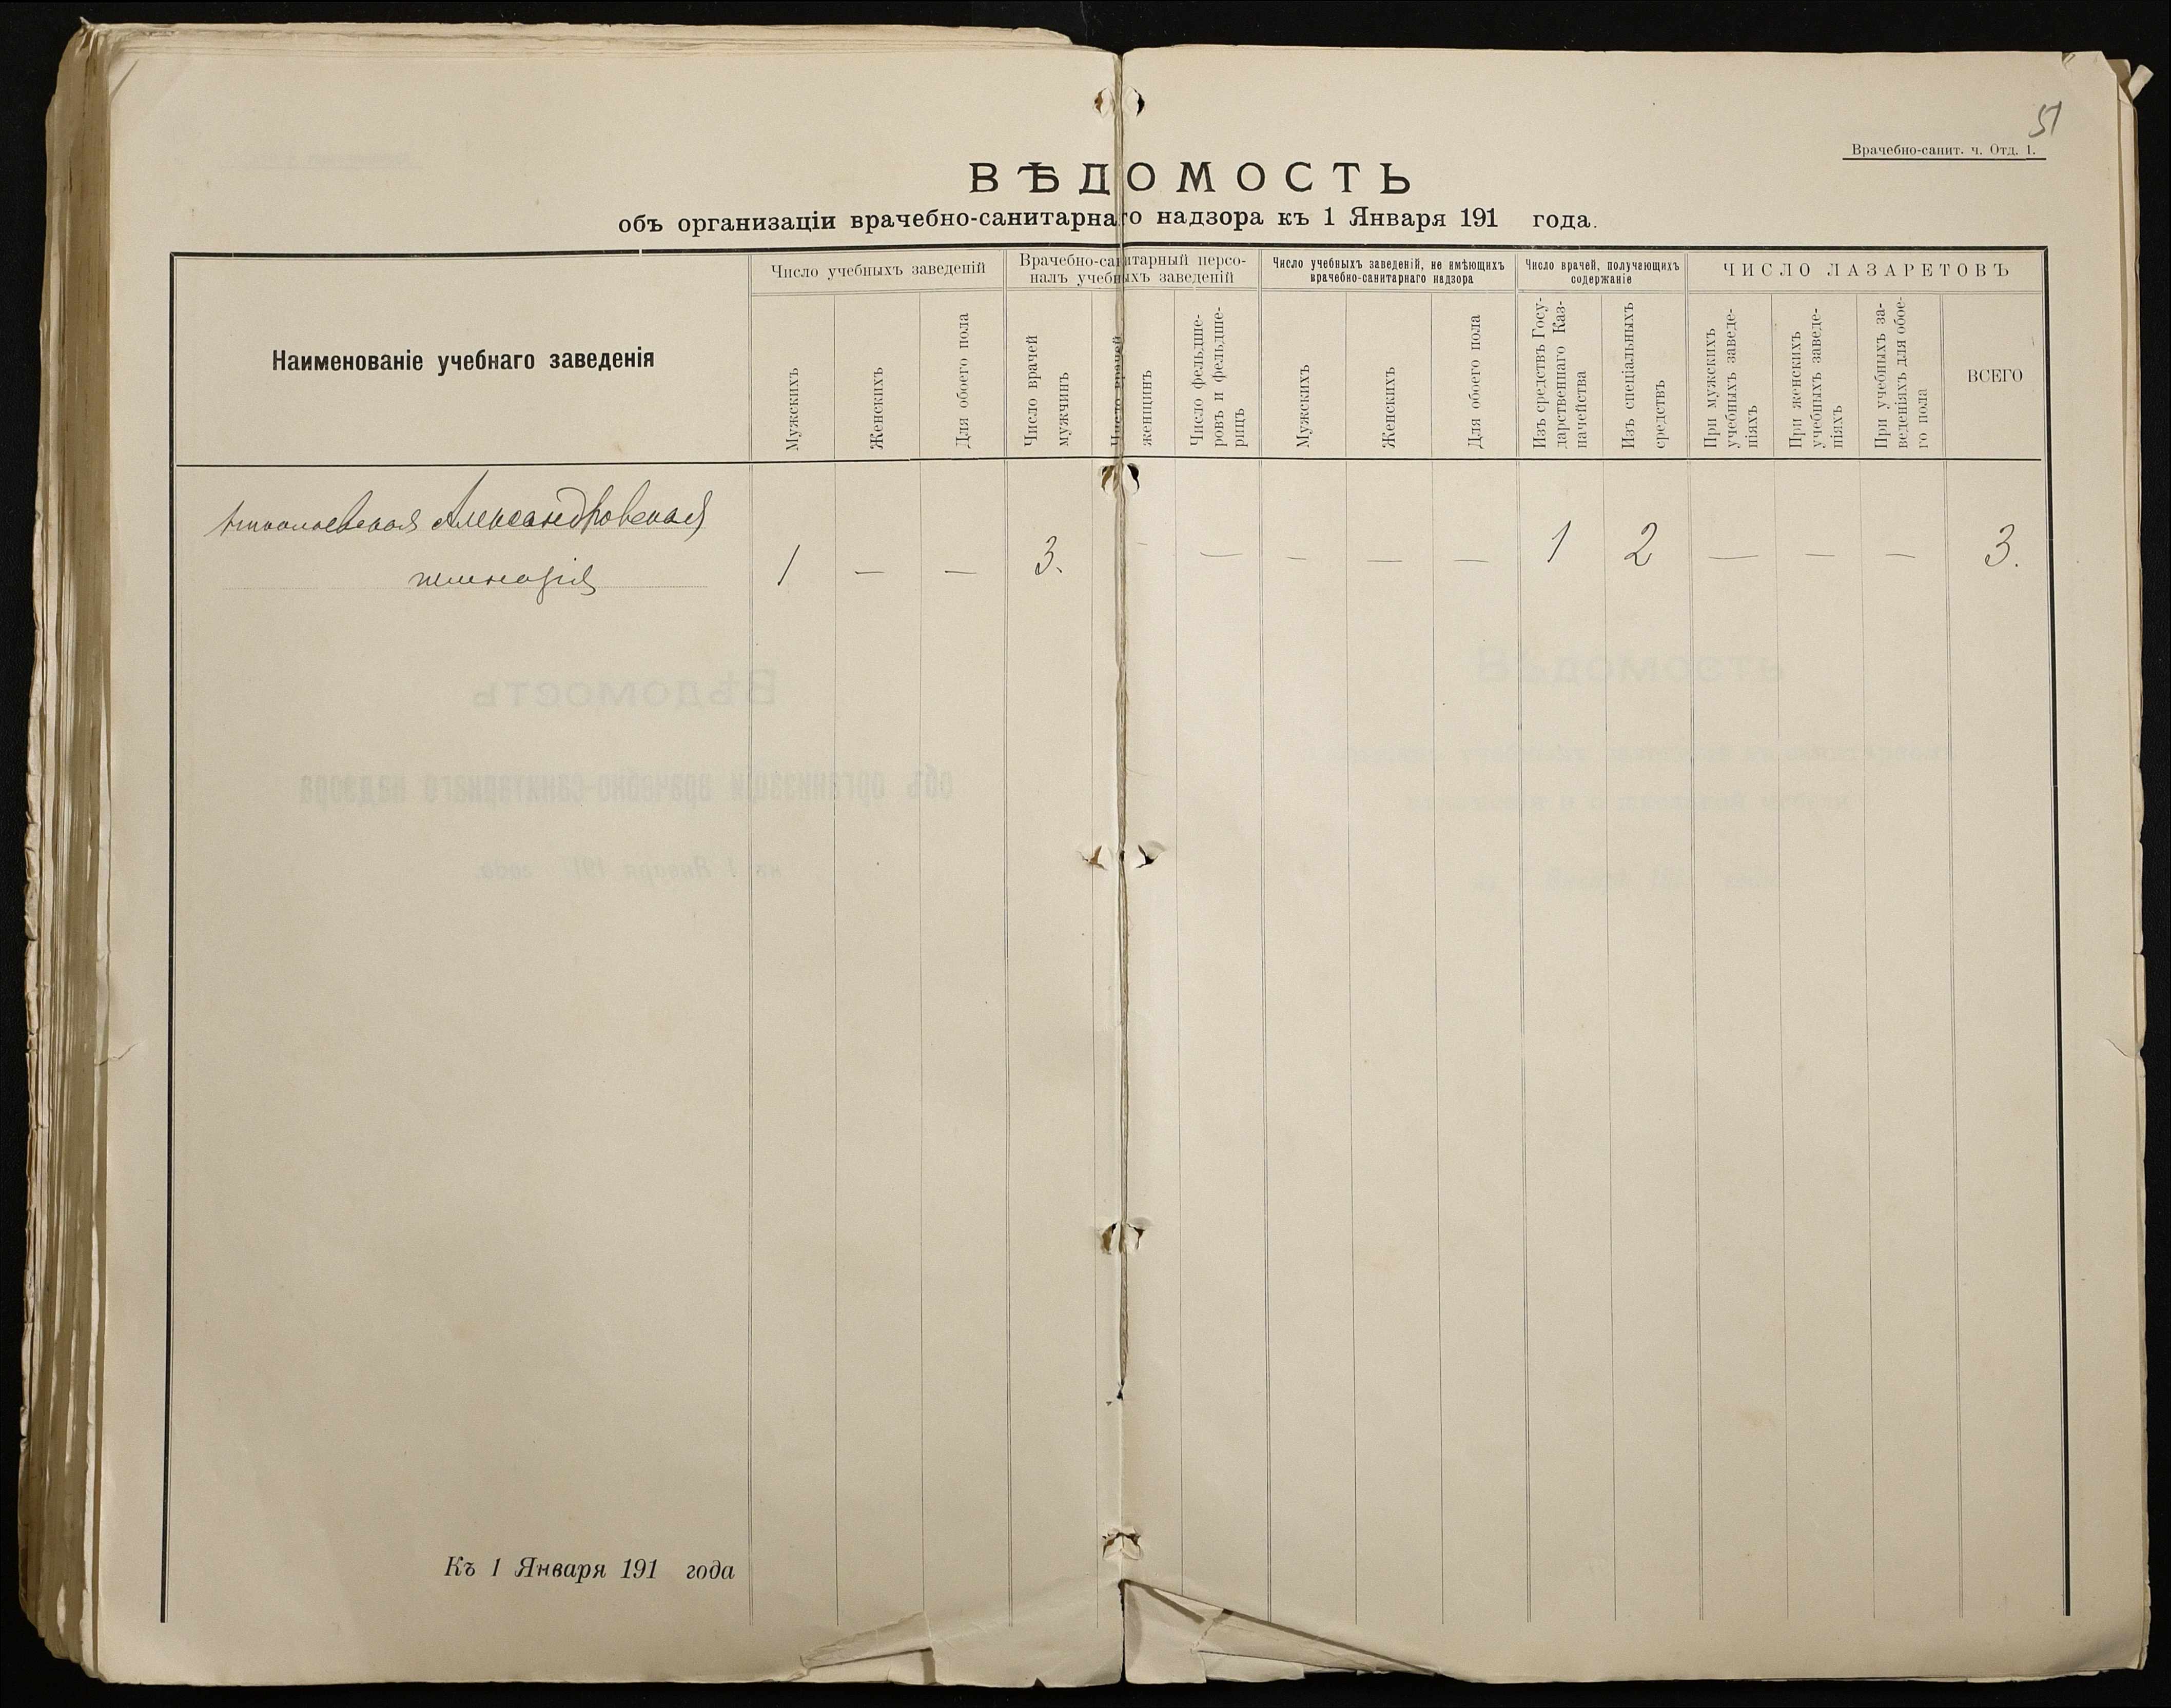 51
Врачебно-санит. ч. Отд. 1.
ВѢДОМОСТЬ
объ организаціи врачебно-санитарнаго надзора къ 1 Января 191 года.
Наименованіе учебнаго заведенія
Число учебныхъ заведеній
Мужскихъ
Женскихъ
Для обоего пола
Врачебно-санитарный персо-
налъ учебныхъ заведеній
Число врачей
мужчинъ
Число врачей
женщинъ
Число фельдше-
ровъ и фельдше-
рицъ
Число учебныхъ заведеній, не имѣющихъ
врачебно-санитарнаго надзора
Мужскихъ
Женскихъ
Для обоего пола
Число врачей, получающихъ
содержаніе
Изъ средствъ Госу-
дарственнаго Каз-
начейства
Изъ спеціальныхъ
средствъ
ЧИСЛО ЛАЗАРЕТОВЪ
При мужскихъ
учебныхъ заведе-
ніяхъ
При женскихъ
учебныхъ заведе-
ніяхъ
При учебныхъ за-
веденіяхъ для обое-
го пола
ВСЕГО
Николаевская Александровская
гимназія 1 — — 3. - — — — — 1 2 — — — 3.
Вѣдомость
объ организаціи врачебно-санитарнаго надзора
къ 1 Января 191 года
Къ 1 Января 191 года